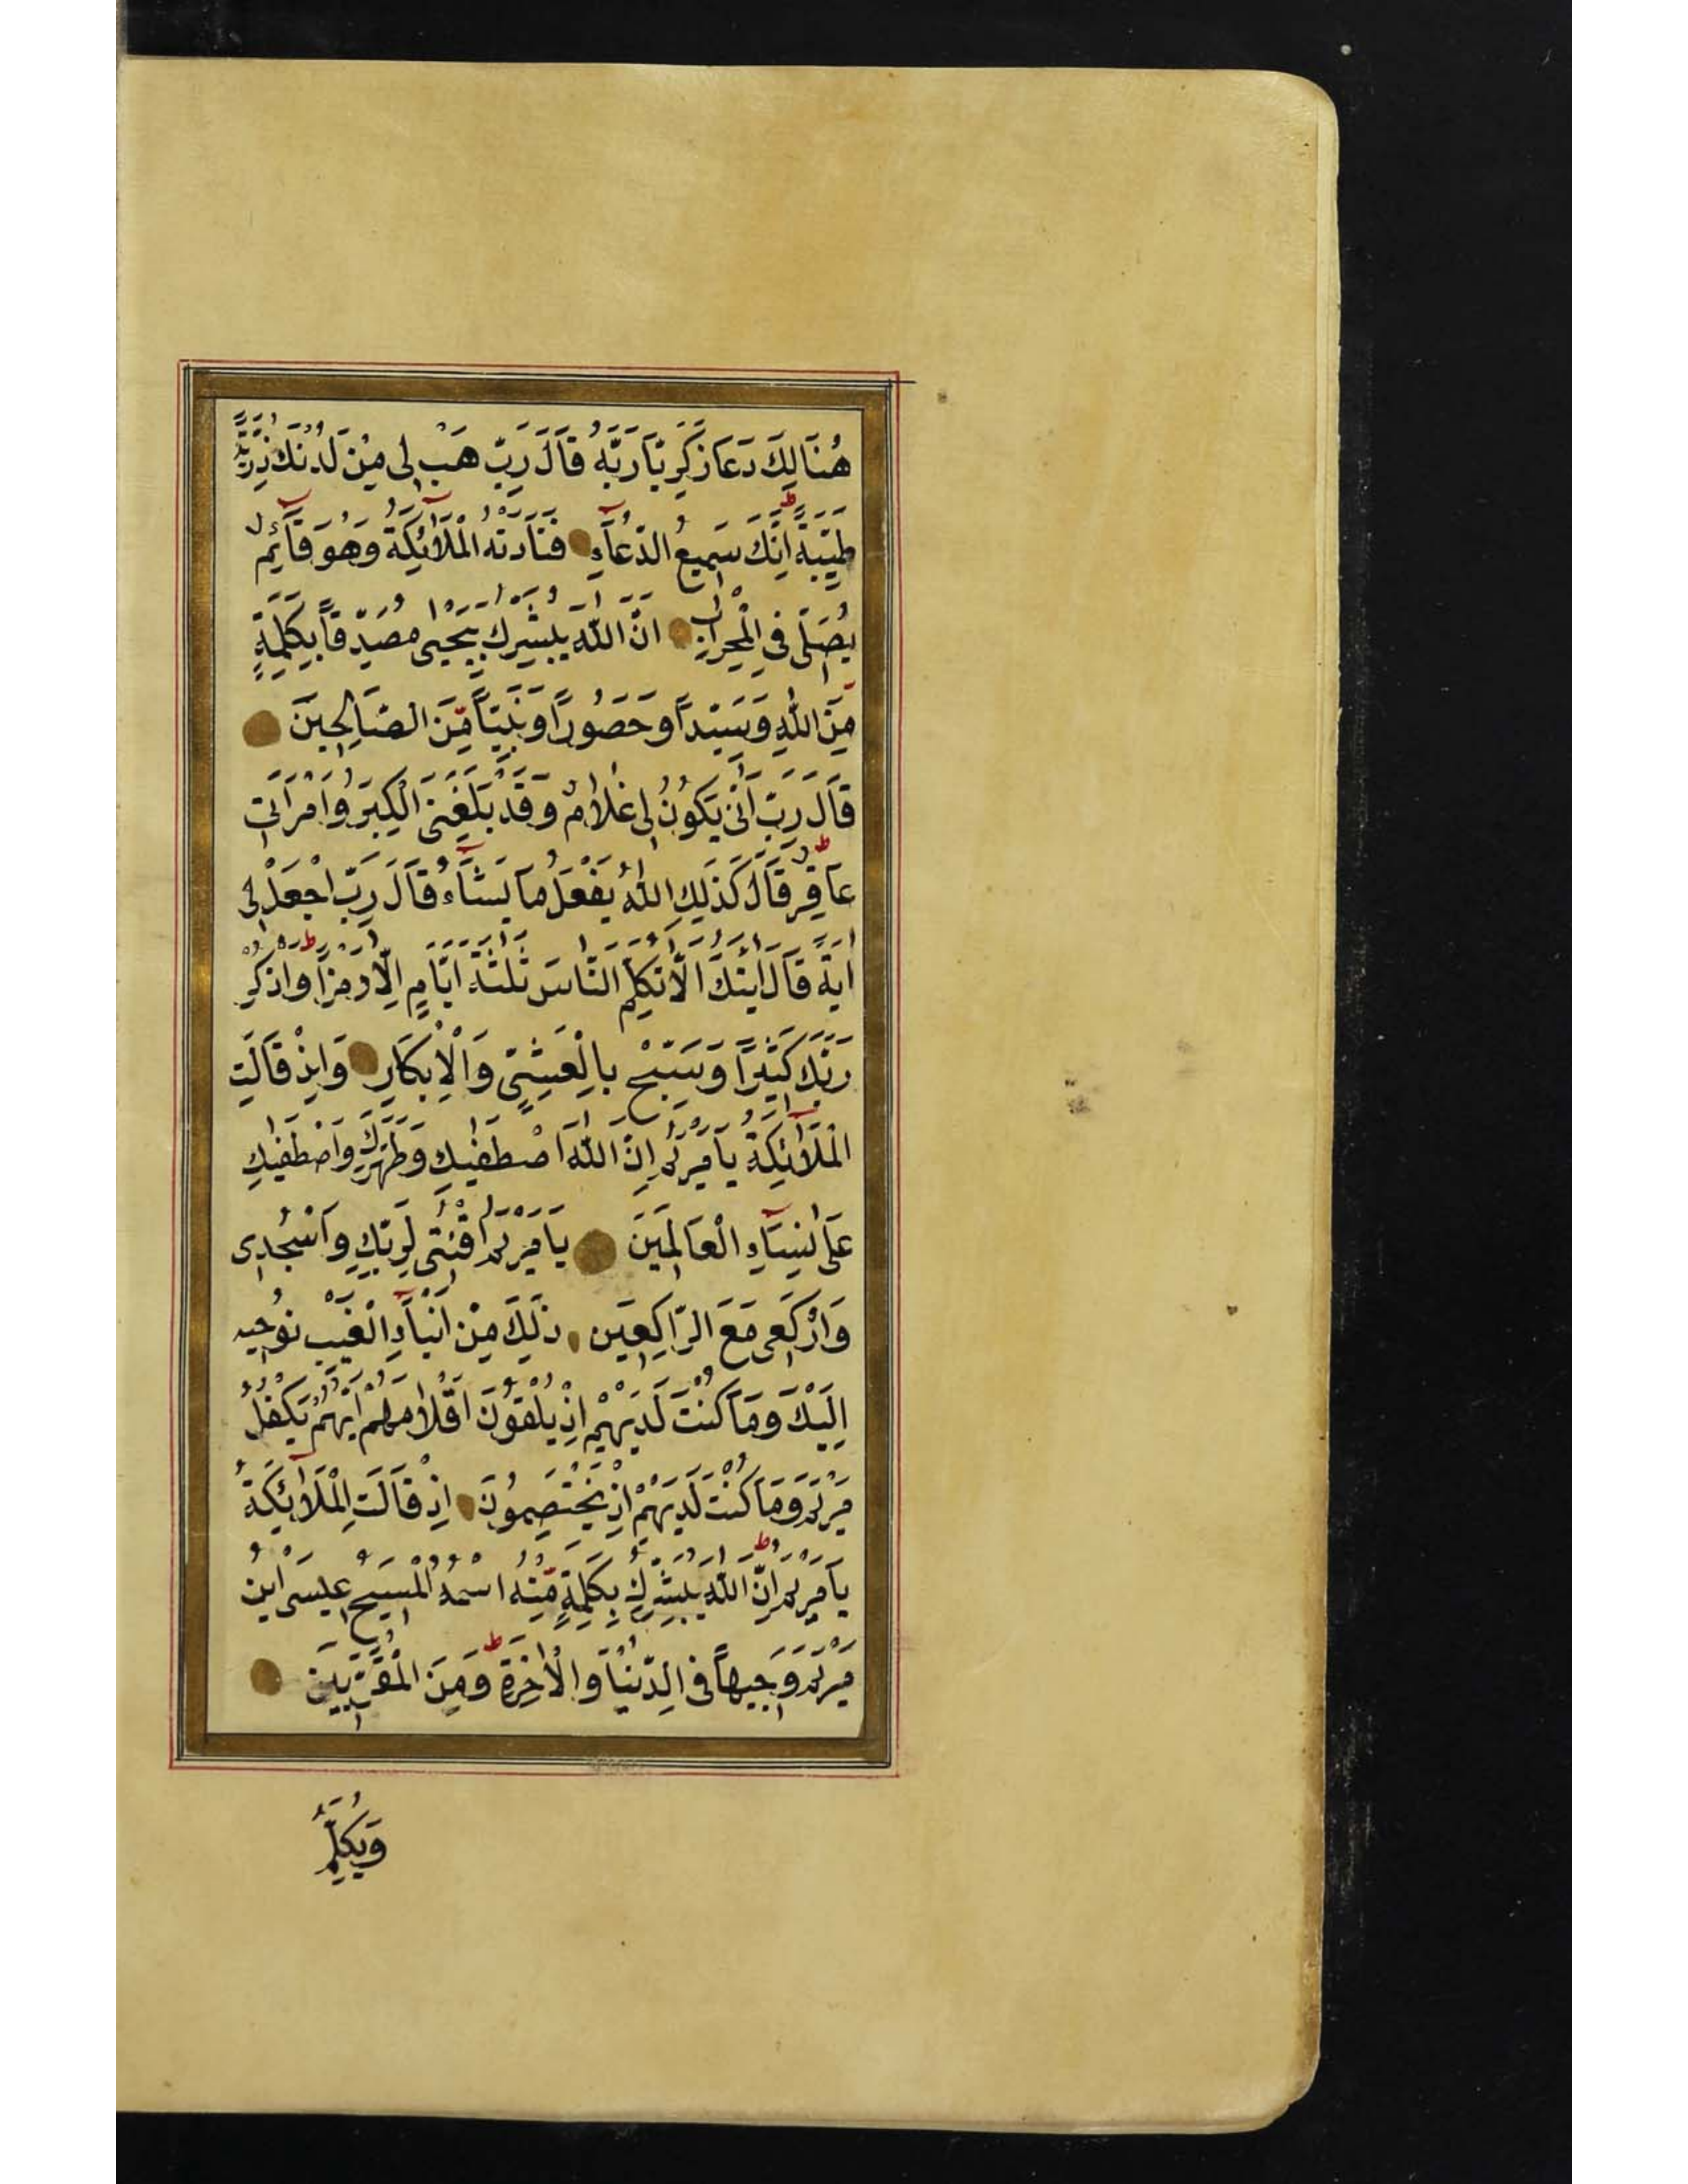 هُنَالِكَ دَعَا زَكَرِيَّا رَبَّهُ قَالَ رَبِّ هَبْ لِى مِنْ لَدُنْكَ ذُرِّيَّةً
طَيِّبَةً اِنَّكَ سَمِيعُ الدُّعَآءِ فَنَادَتْهُ الْمَلَآئِكَةُ وَهُوَ قَآئِمٌ
يُصَلِّى فِى الْمِحْرَابِ اَنَّ اللّٰهَ يُبَشِّرُكَ بِيَحْيٰى مُصَدِّقًا بِكَلِمَةٍ
مِنَ اللّٰهِ وَسَيِّدًا وَحَصُورًا وَنَبِيًّا مِّنَ الصَّالِحِينَ
قَالَ رَبِّ اَنّٰى يَكُونُ لِى غُلَامٌ وَقَدْ بَلَغَنِىَ الْكِبَرُ وَامْرَاَتِى
عَاقِرٌ قَالَ كَذٰلِكَ اللّٰهُ يَفْعَلُ مَا يَشَآءُ قَالَ رَبِّ اجْعَلْ لِى
اٰيَةً قَالَ اٰيَتُكَ اَلَّا تُكَلِّمَ النَّاسَ ثَلٰثَةَ اَيَّامٍ اِلَّا رَمْزًا وَاذْكُرْ
رَبَّكَ كَثِيرًا وَسَبِّحْ بِالْعَشِىِّ وَالْاِبْكَارِ وَاِذْ قَالَتِ
الْمَلَآئِكَةُ يَا مَرْيَمُ اِنَّ اللّٰهَ اصْطَفٰيكِ وَطَهَّرَكِ وَاصْطَفٰيكِ
عَلٰى نِسَآءِ الْعَالَمِينَ يَا مَرْيَمُ اقْنُتِى لِرَبِّكِ وَاسْجُدِى
وَارْكَعِى مَعَ الرَّاكِعِينَ ذٰلِكَ مِنْ اَنْبَآءِ الْغَيْبِ نُوحِيهِ
اِلَيْكَ وَمَا كُنْتَ لَدَيْهِمْ اِذْ يُلْقُونَ اَقْلَامَهُمْ اَيُّهُمْ يَكْفُلُ
مَرْيَمَ وَمَا كُنْتَ لَدَيْهِمْ اِذْ يَخْتَصِمُونَ اِذْ قَالَتِ الْمَلَآئِكَةُ
يَا مَرْيَمُ اِنَّ اللّٰهَ يُبَشِّرُكِ بِكَلِمَةٍ مِّنْهُ اسْمُهُ الْمَسِيحُ عِيسَى ابْنُ
مَرْيَمَ وَجِيهًا فِى الدُّنْيَا وَالْاٰخِرَةِ وَمِنَ الْمُقَرَّبِينَ
وَيُكَلِّمُ